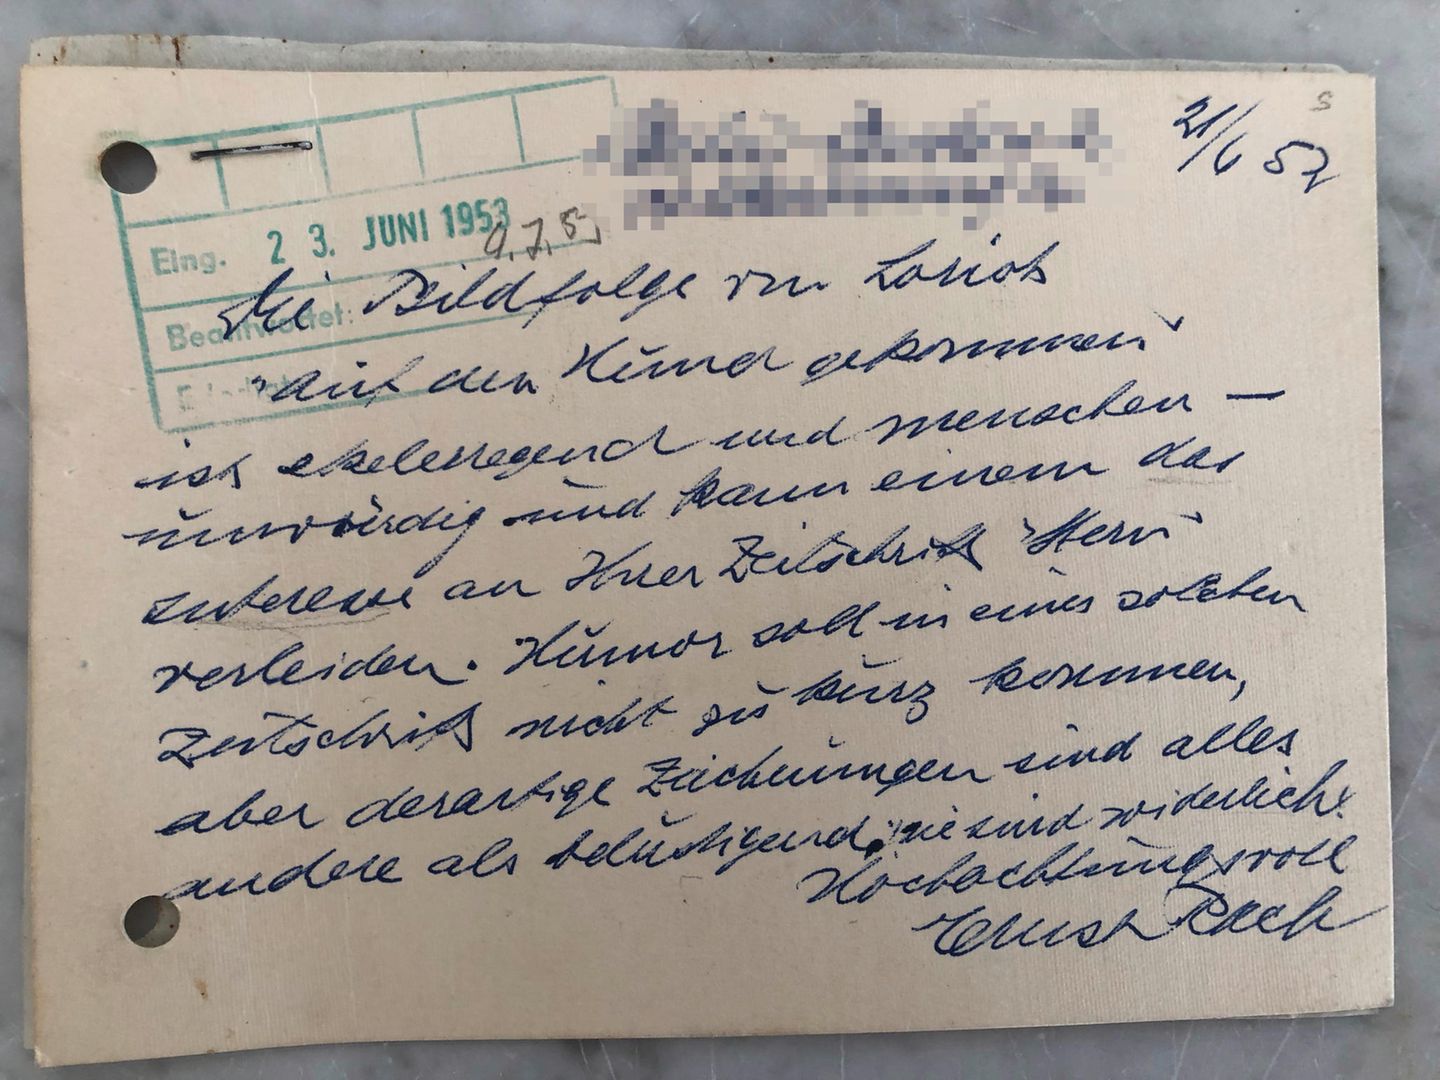 S
21/6 53
Eing. 23. JUNI 1953
9.7.53
Beantwortet:
Die Bildfolge von Loriot
"Auf den Hund gekommen"
ist ekelerregend und menschen-
unwürdig und kann einem das
Interesse an Ihrer Zeitschrift "Stern"
verleiden. Humor soll in einer solchen
Zeitschrift nicht zu kurz kommen,
aber derartige Zeichnungen sind alles
andere als belustigend, sie sind widerlich!
Hochachtungsvoll
Ernst